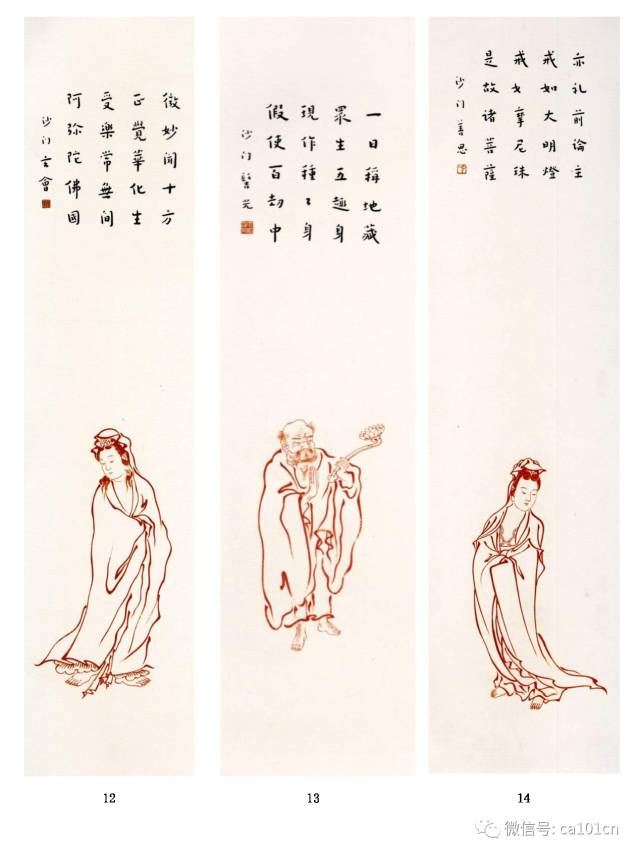 微妙聞十方
正覺華化生
受樂常無間
阿弥陀佛國
沙门玄會
一日稱地藏
眾生五趣身
現作種々身
假使百劫中
沙门髻光
亦礼前論主
戒如大明燈
戒女摩尼珠
是故诸菩薩
沙门善思
12
13
14
微信号: ca101cn